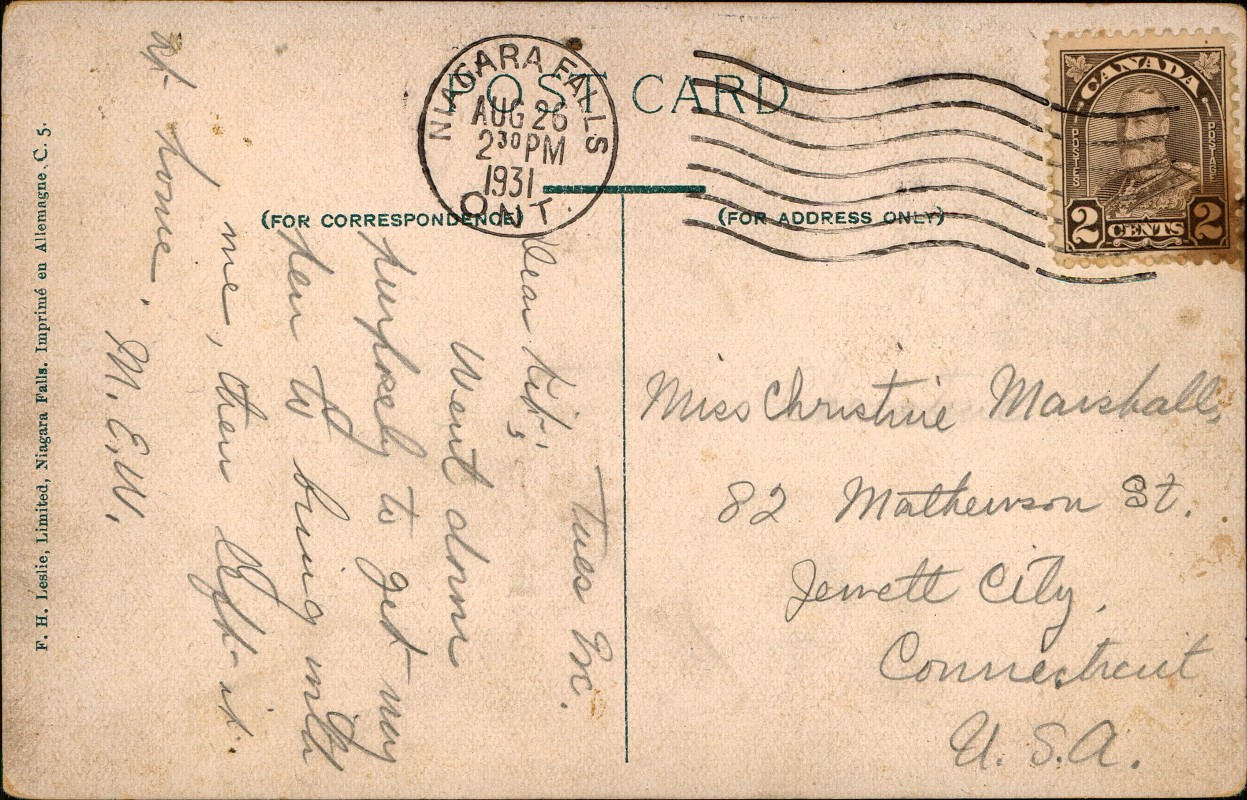 POST CARD
NIAGARA FALLS
AUG 26
2 30 PM
1931
ONT.
CANADA
POSTES
POSTAGE
2 CENTS 2
(FOR CORRESPONDENCE)
(FOR ADDRESS ONLY)
Tues
Dear Kit;
Went down
purposely to get my
pen to bring with
me, then left it
at home.
M. E. W.
Miss Christine Marshall,
82 Mathewson St.
Jewett City,
Connecticut
U. S. A.
F. H. Leslie, Limited, Niagara Falls. Imprimé en Allemagne. C. 5.